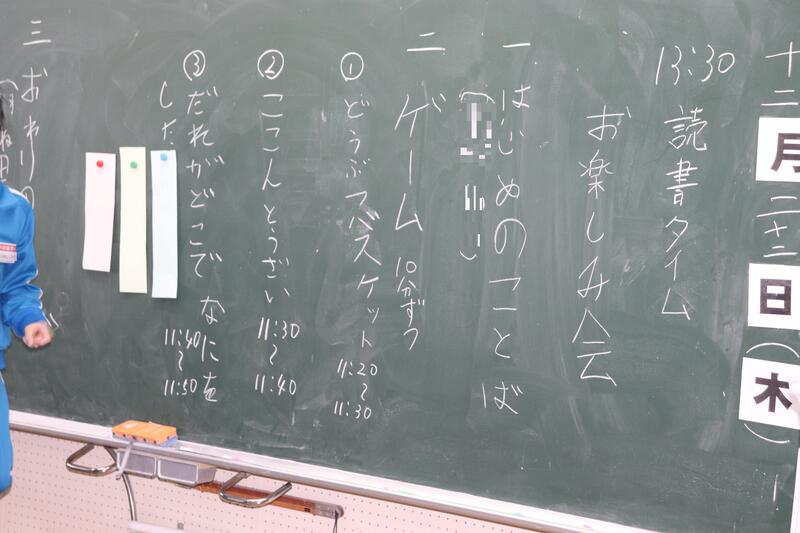 十二月二十二日(木)
13:30 読書タイム
お楽しみ会
一 はじめのことば
( )
二 ゲーム 10分ずつ
① どうぶつバスケット 11:20〜11:30
② ここんとうざい 11:30〜11:40
③ だれがどこでなにを 11:40〜11:50
した
三 おわりの